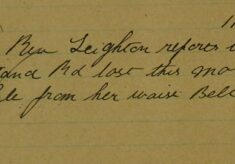 11
Rev Leighton reports
and Rd lost this mo
from her waist Bel